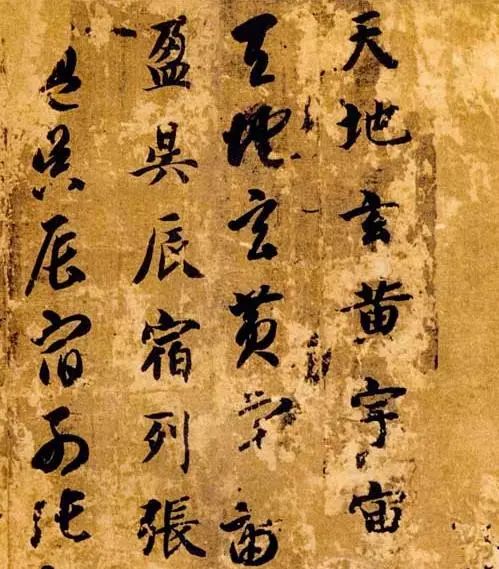 天地玄黄宇宙
天地玄黄宇宙
盈昃辰宿列張
盈昃辰宿列張